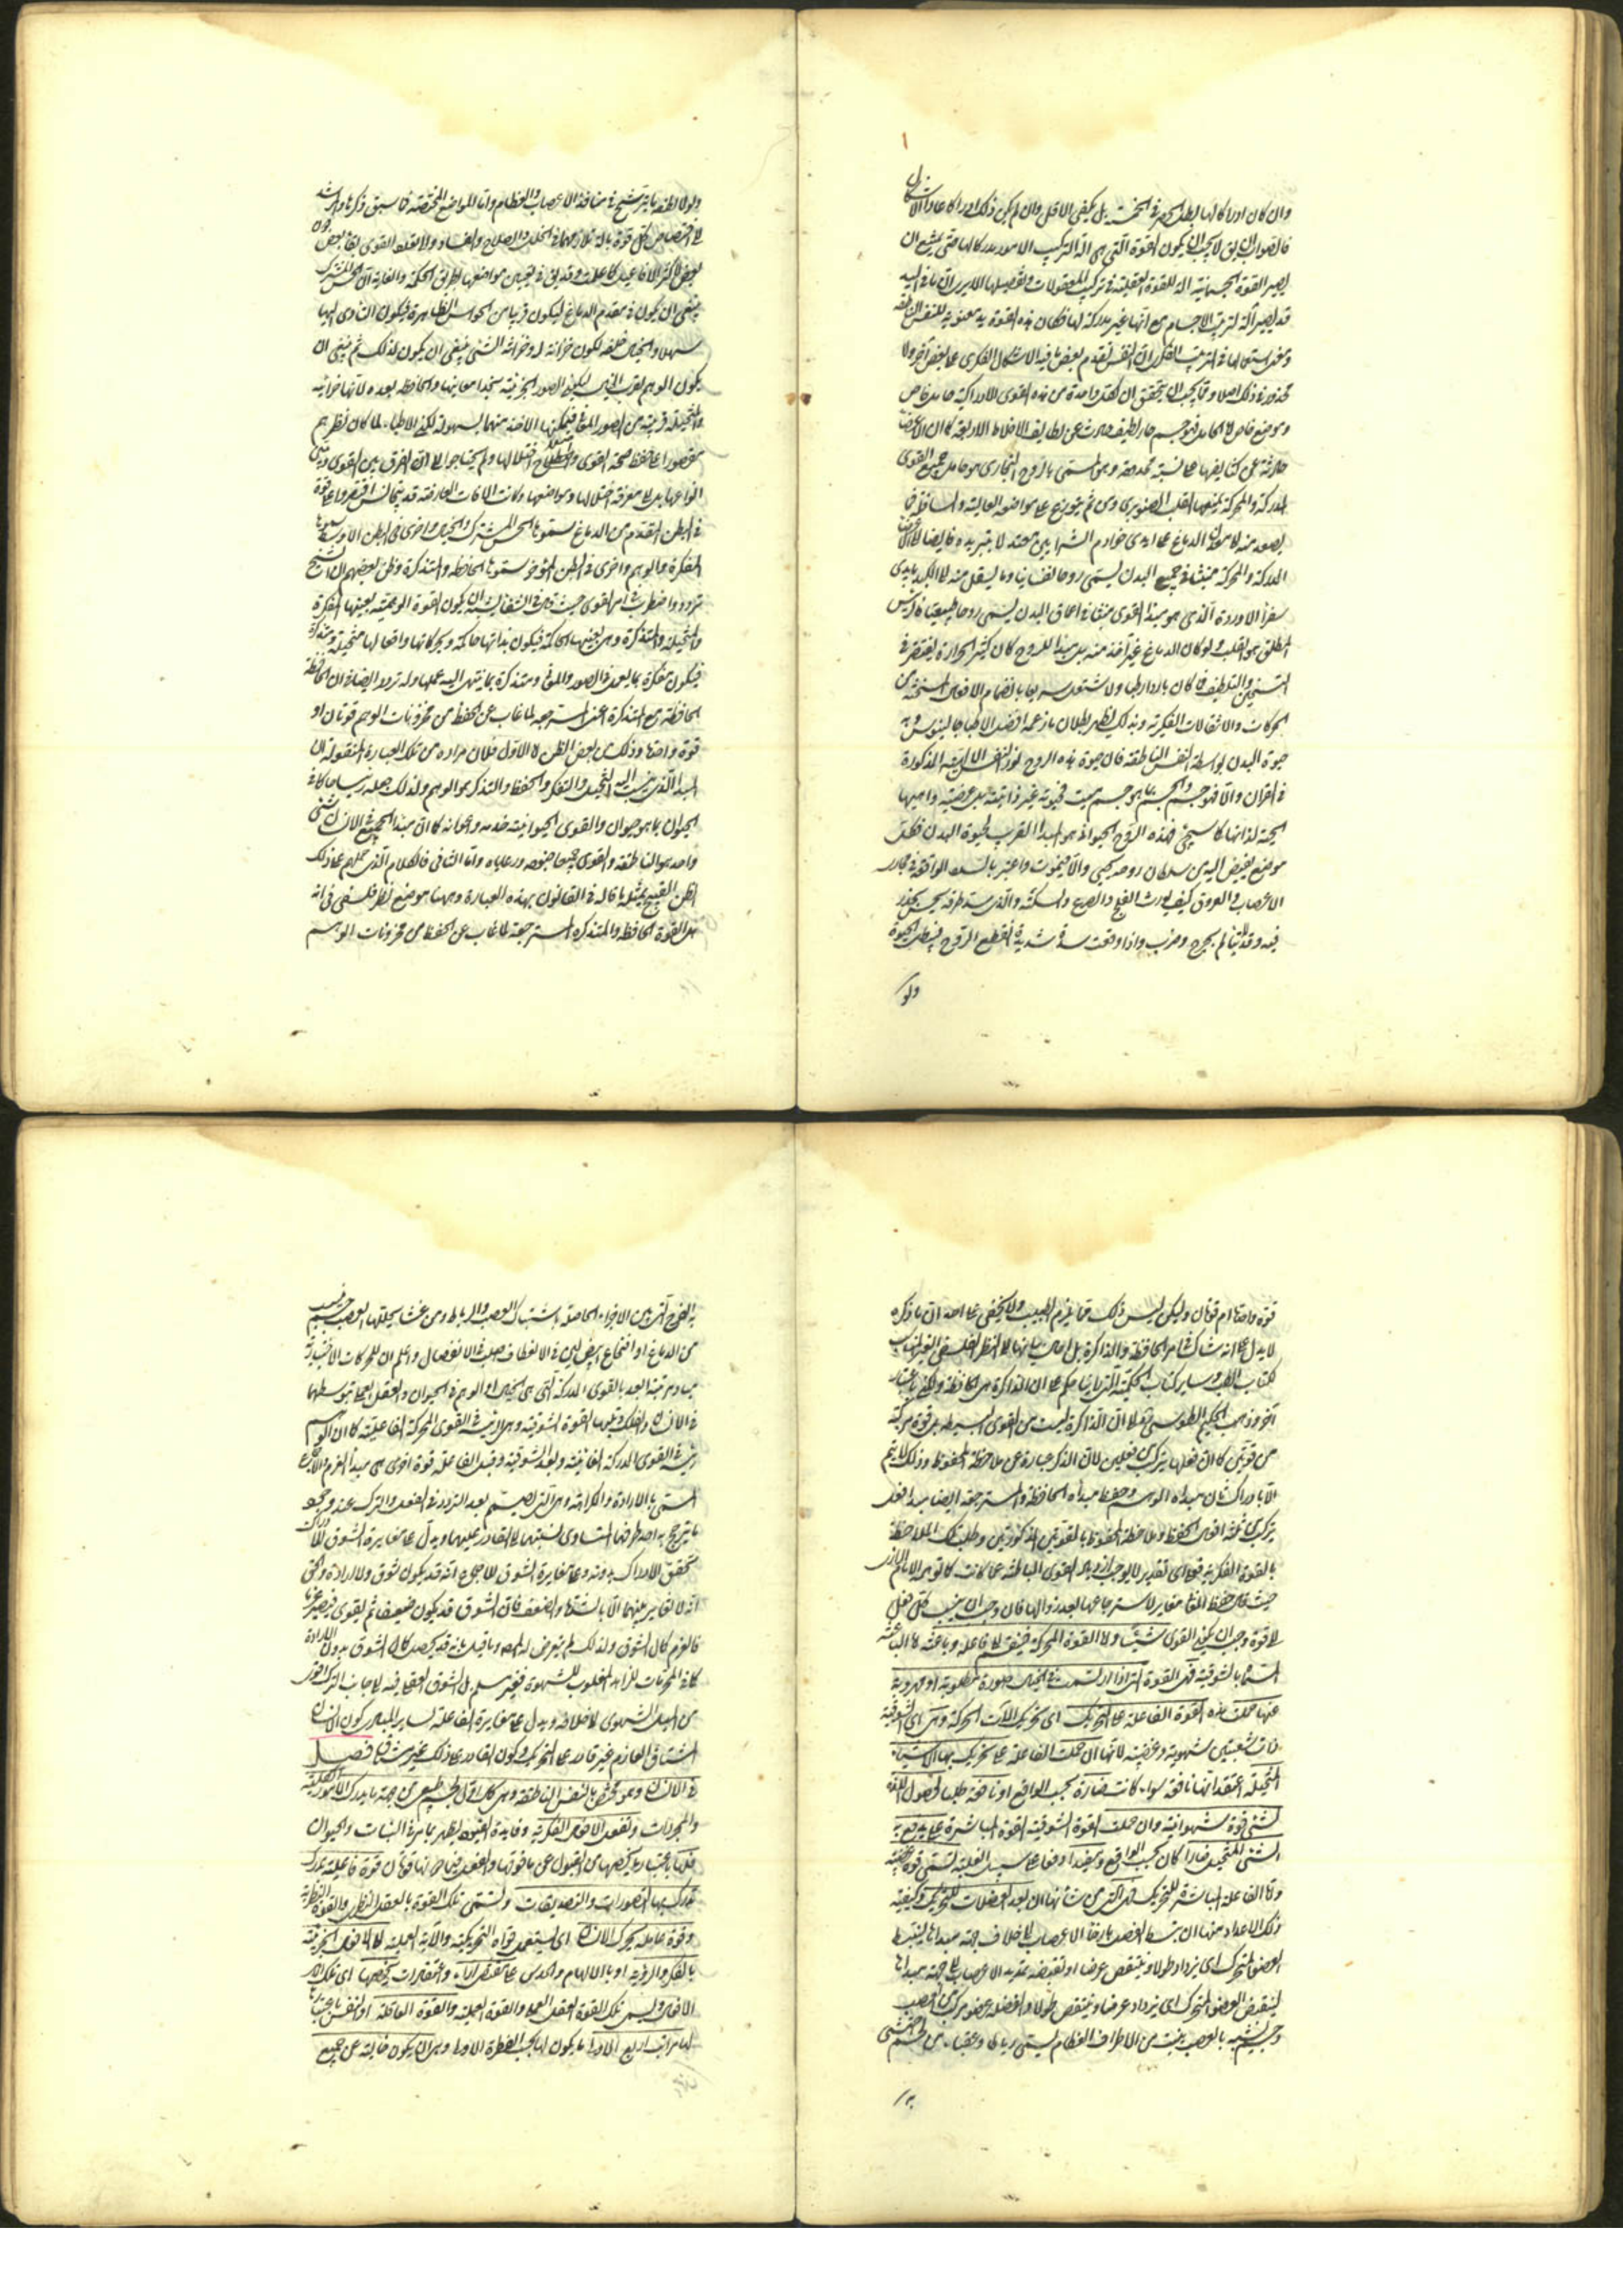 وان كان ادراكا لها بطل الحصر في الخمسة بل يكفى الاقل وان لم يكن ذلك ادراكا عاد الاشكال
فالصواب ان يق لا يجب ان يكون القوة التى هى آلة التركيب الامور مدركا لها حتى يمتنع ان
يصير القوة الجسمانية آلة للقوة العقلية في تركيب المعقولات وتفصيلها الا يرى ان ما في اليد
قد يصير آلة لتركيب الاجسام مع انها غير مدركة لها فكان هذه القوة يد معنوية للنفس الناطقة
وعند استعمالها في الترتيب الفكرى النفس تقدم بعض ما فيه الاشكال الفكرى على بعض آخر ولا
محذور في ذلك اصلا ومما يجب ان يتحقق ان لكل واحدة من هذه القوى الادراكية حامل خاص
وموضع خاص اما الحامل فهو جسم حار لطيف حادث عن لطايف الاخلاط الاربعة كما ان الاعضاء
حادثة عن كثايفها على نسبة محدودة وهو المسمى بالروح البخارى هو حامل جميع القوى
المدركة والمحركة منبعها القلب الصنوبرى ومن ثم يتوزع على مواضعه العالية والسافلة فما
يصعد منه الى معدن الدماغ على ايدى خوادم الشرايين معتد لا بتبريده فايضا الى الاعضاء
المدركة والمحركة منبثا في جميع البدن يسمى روحا نفسانيا وما يسفل منه الى الكبد بايدى
سفراء الاوردة الذى هو مبدا القوى منبثا في اعماق البدن يسمى روحا طبيعيا فالرئيس
المطلق هو القلب ولو كان الدماغ غير آخذ منه بل مبدا للروح كان كثير الحرارة يفتقر في
التسخين والتلطيف فما كان باردا رطبا ولا شتعل سريعا بانضمام الافعال المسخنة من
الحركات والانتقالات الفكرية وبذلك يظهر بطلان ما زعمه افضل الاطبا جالينوس وبه
حيوة البدن بواسطة النفس الناطقة فان حيوة هذه الروح نور النفس الالهية المذكورة
في القران والا فهو جسم والجسم بما هو جسم ميت فحيوته غير ذاتية بل عرضية واهبها
الحية لذاتها كما سيجئ فهذه الروح الحيوانى هو المبدا القريب لحيوة البدن فكل
موضع يفيض اليه من سلطان روحه يحيى والا فيموت واعتبر بالسدد الواقعة في مجارى
الاعصاب والعروق كيف يورث الفالج والصرع والسكتة والذى سد طرفه يحس بخدر
فيه وقد لا يتألم بجرح وضرب واذا وقعت سدة شديدة انقطع الروح فيبطل الحيوة
ولو
ولولا لطفه ما يترشح في منافذ الاعصاب والعظام واما المواضع المختصة فما سبق ذكرها وارشد
الى اختصاص كل قوة بآلة تلازمهما في الخلل والصلاح والفساد والا لفقد القوى لقا بعض دون
بعض لاكثر الافاعيل كما علمت وقد يق في تعيين مواضعها بطريق الحكمة والغاية ان الحس المشترك
ينبغى ان يكون في مقدم الدماغ ليكون قريبا من الحواس الظاهرة فيكون التادى اليها
سهلا والخيال خلفه لكونه خزانة له وخزانة الشئ ينبغى ان يكون كذلك ثم ينبغى ان
يكون الوهم بقرب الخيال ليكون الصور الجزئية بحذاء معاينها والحافظة بعده لانها خزانته
والمتخيلة قريبة من الصور والمعانى فيمكنها الاخذ منهما بسهولة لكن الاطباء لما كان نظرهم
مقصورا على حفظ صحة القوى واصلاح اختلالها ولم يحتاجوا الى الفرق بين القوى وبين
انواعها بل الى معرفة افعالها ومواضعها وكانت الافات العارضة قد يتجانس اقتصروا على قوة
في البطن المقدم من الدماغ سموها الحس المشترك والخيال واخرى في البطن الاوسط سموها
المفكرة والوهم واخرى في البطن المؤخر سموها الحافظة والمتذكرة وظن بعضهم ان الشيخ
تردد واضطرب في امر القوى حيث قال في الشفا يشبه ان يكون القوة الوهمية بعينها المفكرة
والمتخيلة والمتذكرة وهى بعينها الحاكمة فيكون بذاتها حاكمة وبحركاتها وافعالها متخيلة ومتذكرة
فيكون مفكرة بما يعمل في الصور والمعانى ومتذكرة بما ينتهى اليه عملها وله تردد ايضا في ان الحافظة
الحافظة مع المتذكرة اعنى المسترجعة لما غاب عن الحفظ من مخزونات الوهم قوتان او
قوة واحدة وذلك من بعض الظن اما الاول فلان مراده من تلك العبارة المنقولة ان
المبدا الذى ينسب اليه التخيل والتفكر والحفظ والتذكر هو الوهم ولذلك جعله رئيسا حاكما في
الحيوان بما هو حيوان والقوى الحيوانية خدمه واعوانه كما ان مبدا الجميع في الانسان شئ
واحد هو الناطقة والقوى جميعا جنوده ورعاياه واما الثانى فالكلام الذى حملهم على ذلك
الظن القبيح بمثله ما قاله في القانون بهذه العبارة وههنا موضع نظر فلسفى في انه
هل القوة الحافظة والمتذكرة المسترجعة لما غاب عن الحفظ من مخزونات الوهم
قوة واحدة ام قوتان وليكن ليس ذلك مما يلزم الطبيب ولا يخفى على احد ان ما ذكره
لا يدل على انه شاك في امر الحافظة والذاكرة بل احال بيانها الى النظر الفلسفى الغير المناسب
لكتاب الطب وسائر كتبه الحكمية التى رايناها حكم على ان الذاكرة هى الحافظة ولكن باعتبار
آخر وذهب الحكيم الطوسى نقلا ان الذاكرة ليست من القوى البسيطة بل قوة مركبة
من قوتين كما ان فعلها يتركب من فعلين لان الذكر عبارة عن ملاحظة المحفوظ وذلك لا يتم
الا بادراك ثان مبداه الوهم وحفظ مبداه الحافظة والمسترجعة ايضا مبدا فعل
يتركب من ثلثة افعال الحفظ وملاحظة المحفوظ بالقوتين المذكورتين وطلب تلك الملاحظة
بالقوة الفكرية فهو على اى تقدير لا يوجب ازدياد القوى الباطنة على ما كانت كما توهمه الامام الرازى
حيث قال حفظ المعانى مغاير لاسترجاعها بعد زوالها فان وجب ان ينسب كل فعل
الى قوة وجب ان يكون القوى ستا واما القوة المحركة فينقسم الى فاعلة وباعثة اما الباعثة
المسماة بالشوقية فهى القوة التى اذا ارتسمت في الخيال صورة مطلوبة او مهروبة
عنها حملت هذه القوة الفاعلة على التحريك اى تحريك الآت الحركة وهى اى الشوقية
ذات شعبتين شهوية وغضبية لانها ان حملت الفاعلة على تحريك يطلب بها الاشياء
المتخيلة اعتقد انها نافعة سواء كانت ضارة بحسب الواقع او نافعة طلبا لحصول اللذة
تسمى قوة شهوانية وان حملت القوة الشوقية القوة المباشرة على ما يدفع به
الشئ المتخيل ضارا كان بحسب الواقع او مفيدا دفعا على سبيل الغلبة تسمى قوة غضبية
واما الفاعلة المباشرة للتحريك فهى التى من شانها ان يعد العضلات للتحريك وكيفية
ذلك الاعداد منها ان يبسط العضل بارخاء الاعصاب الى خلاف جهة مبداها لينبسط
العضو المتحرك اى يزداد طولا وينتقص عرضا او تقبضه بتمديد الاعصاب الى جهة مبداها
لينقبض العضو المتحرك اى يزداد عرضا وينتقص طولا والعضلة عضو مركب من العصب
وجسم شبيه بالعصب ينبت من الاطراف العظام يسمى رباطا وعقبا ومن لحم احتشى
به
به الفرج التى بين الاجزاء الحاصلة باشتباك العصب والرباط ومن غشاء يجللها والعصب جسم ينبت
من الدماغ او النخاع ابيض لين في الانعطاف صلب في الانفصال واعلم ان للحركات الاختيارية
مبادى مترتبة ابعدها القوى المدركة التى هى الخيال او الوهم في الحيوان والعقل العملى بتوسطهما
في الانسان والفلك ويليها القوة الشوقية وهى الرئيسة في القوى المحركة الفاعلية كما ان الوهم
رئيسة في القوى المدركة الخازنية وبعد الشوقية وقبل الفاعلة قوة اخرى هى مبدا العزم والاجماع
المسمى بالارادة والكراهة وهى التى يصمم بعد التردد في الفعل والترك عند وجود
ما يترجح به احد طرفيها المتساوى نسبتهما الى القادر عليهما ويدل على مغايرة الشوق للادراك
تحقق الادراك بدونه وعلى مغايرة الشوق للاجماع انه قد يكون شوق ولا ارادة والحق
انه لا تغاير بينهما الا بالشدة والضعف فان الشوق قد يكون ضعيفا ثم يقوى فيصير عزما
فالعزم كمال الشوق ولذلك لم يتعرض له المص وما قيل بانه قد يحصل كمال الشوق بدون الارادة
كما في المحرمات للزاهد المغلوب للشهوة فغير مسلم بل الشوق العقلى فيه الى جانب الترك اقوى
من الميل الشهوى الى خلافه ويدل على مغايرة الفاعلة لساير المبادى كون الانسان
المشتاق العازم غير قادر على التحريك وكون القادر على ذلك غير مشتاق فصل
في الانسان وهو مختص بالنفس الناطقة وهى كمال اول لجسم طبيعى آلى من جهة ما يدرك الامور الكلية
والمجردات وتفعل الافعال الفكرية وفايدة القيود يظهر مما مر في النبات والحيوان
فلها باعتبار ما يخصها من القبول عن ما فوقها والفعل فيما دونها قوتان قوة عاقلة تدرك
تدرك بها التصورات والتصديقات وتسمى تلك القوة بالعقل النظرى والقوة النظرية
وقوة عاملة تحرك الانسان اى تستعمل قواه التحريكية والآية العملية الى الافعال الجزئية
بالفكر والروية او بالالهام والحدس على مقتضى آراء واعتقادات تخصها اى تلك
الافعال ويسمى تلك القوة العقل العملى والقوة العملية والقوة العاقلة او النفس باعتبارها
لها مراتب اربع الاولى ما يكون لها بحسب الفطرة الاولى وهى ان يكون خالية عن جميع